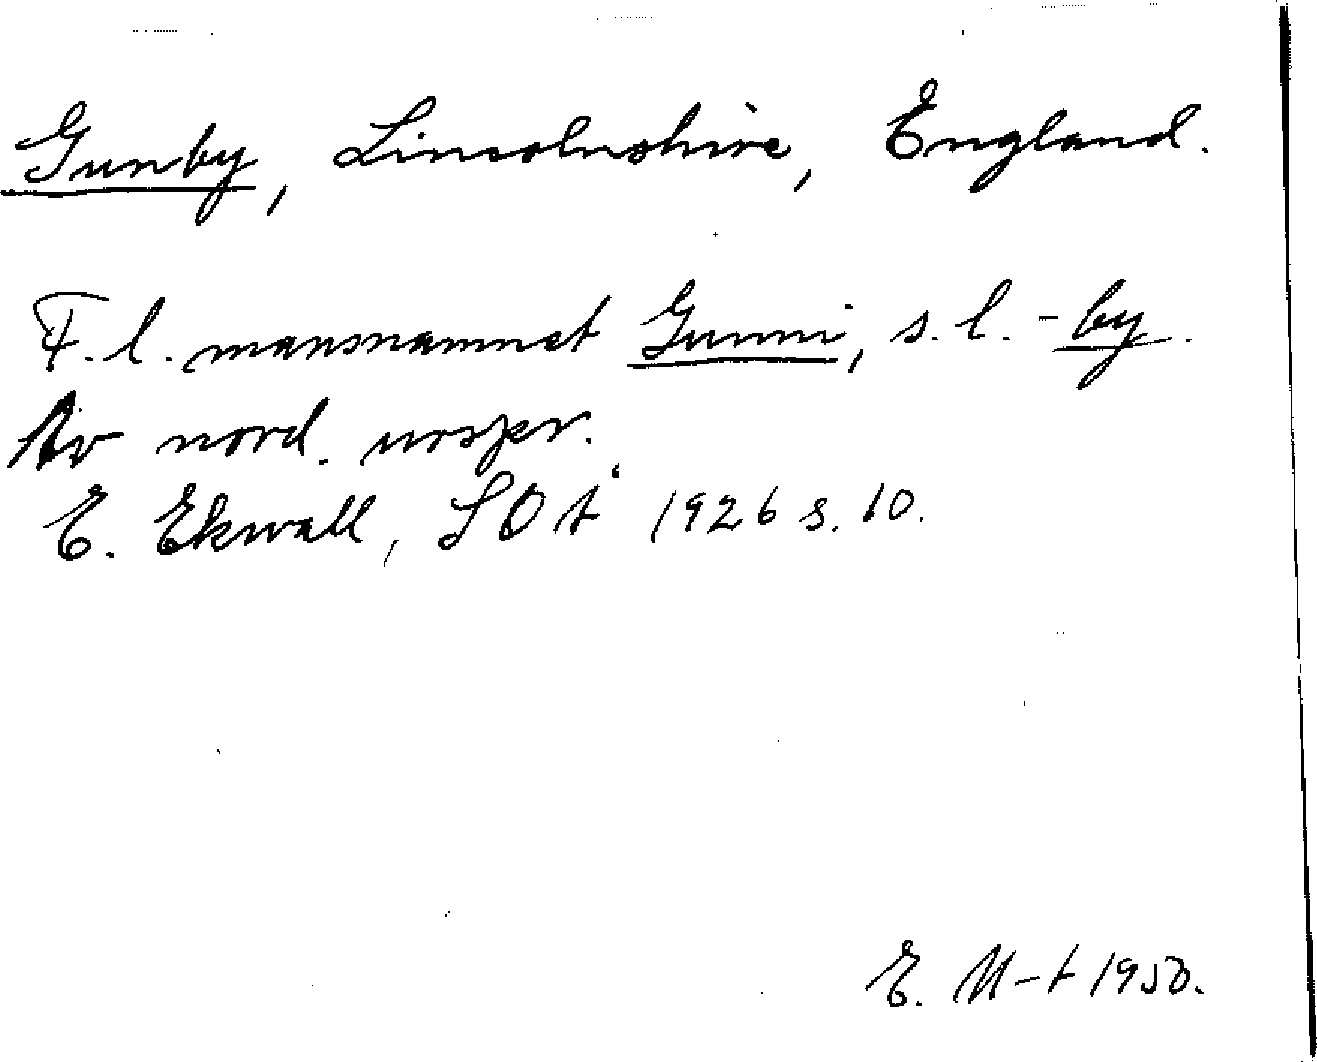 Gunby, Lincolnshire, England.
F.l. mansnamnet Gunni, s.l. -by.
Av nord. urspr.
E. Ekwall, SOÅ 1926 s. 10.
E. M-t 1950.